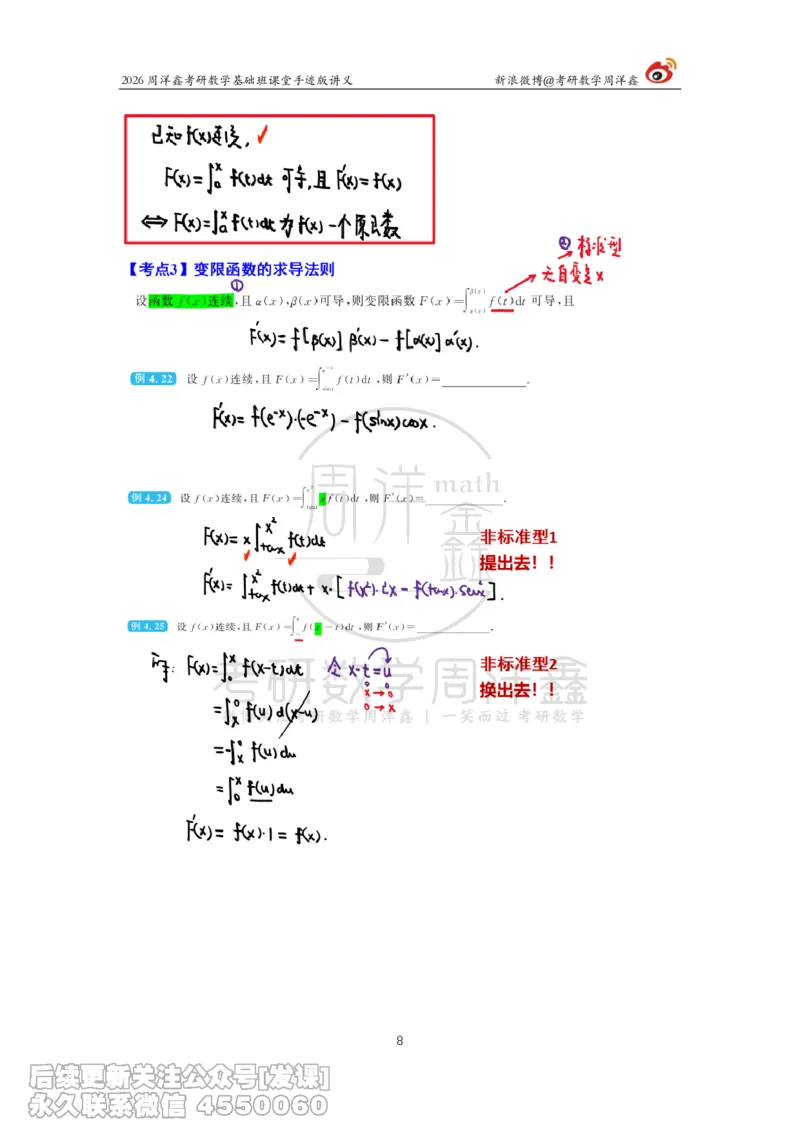 2026 周洋鑫考研数学基础班课堂手迹版讲义 新浪微博@考研数学周洋鑫
已知f(x)连续，✓
F(x)=∫ₐˣ f(t)dt 可导,且 F'(x)=f(x)
⟺ F(x)=∫ₐˣ f(t)dt 为 f(x) 一个原函数
② 标准型
【考点3】变限函数的求导法则
无自变量x
①
设函数 f(x)连续,且 α(x),β(x)可导,则变限函数 F(x)=∫_{α(x)}^{β(x)} f(t)dt 可导,且
F'(x)=f[β(x)]β'(x)-f[α(x)]α'(x).
例 4.22 设 f(x)连续,且 F(x)=∫_{sinx}^{e^{-x}} f(t)dt,则 F'(x)=____________.
F'(x)=f(e^{-x})·(-e^{-x})-f(sinx)cosx.
周洋 math
金
鑫
例 4.24 设 f(x)连续,且 F(x)=∫_{tanx}^{x²} xf(t)dt,则 F'(x)=____________.
F(x)=x∫_{tanx}^{x²} f(t)dt
非标准型1
提出去！！
F'(x)=∫_{tanx}^{x²} f(t)dt+x·[f(x²)·2x-f(tanx)·sec²x].
例 4.25 设 f(x)连续,且 F(x)=∫₀ˣ f(x-t)dt,则 F'(x)=____________.
解: F(x)=∫₀ˣ f(x-t)dt 令 x-t=u
非标准型2
换出去！！
考研数学周洋鑫
x→0
0→x
=∫ₓ⁰ f(u)d(x-u)
考研数学周洋鑫 | 一笑而过 考研数学
=-∫ₓ⁰ f(u)du
=∫₀ˣ f(u)du
F'(x)=f(x)·1=f(x).
8
后续更新关注公众号[发课]
永久联系微信 4550060